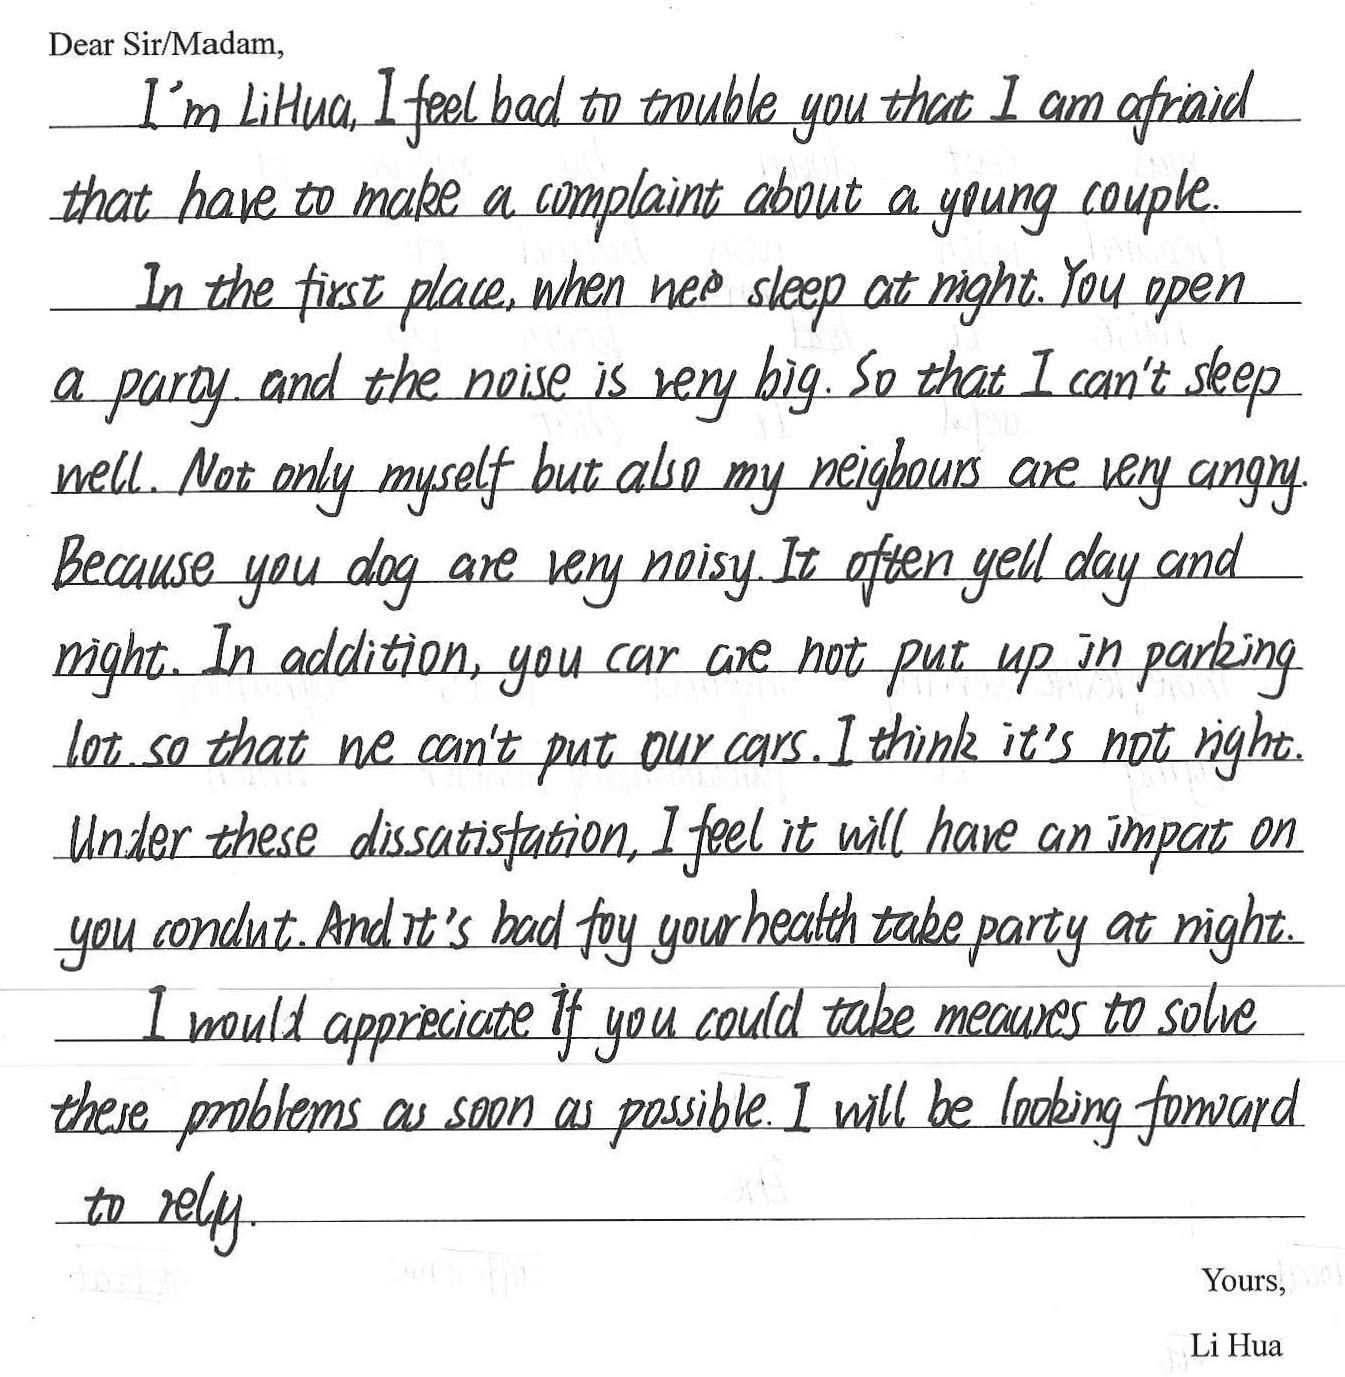 Dear Sir/Madam,
I'm LiHua, I feel bad to trouble you that I am afriaid
that have to make a complaint about a young couple.
In the first place, when sleep at night. You open
a party. and the noise is very big. So that I can't sleep
well. Not only myself but also my neigbours are very angry.
Because you dog are very noisy. It often yell day and
night. In addition, you car are not put up in parking
lot. so that we can't put our cars. I think it's not right.
Under these dissatisfation, I feel it will have an impat on
you condut. And it's bad foy your health take party at night.
I would appreciate if you could take meaures to solve
these problems as soon as possible. I will be looking forward
to rely.
Yours,
Li Hua